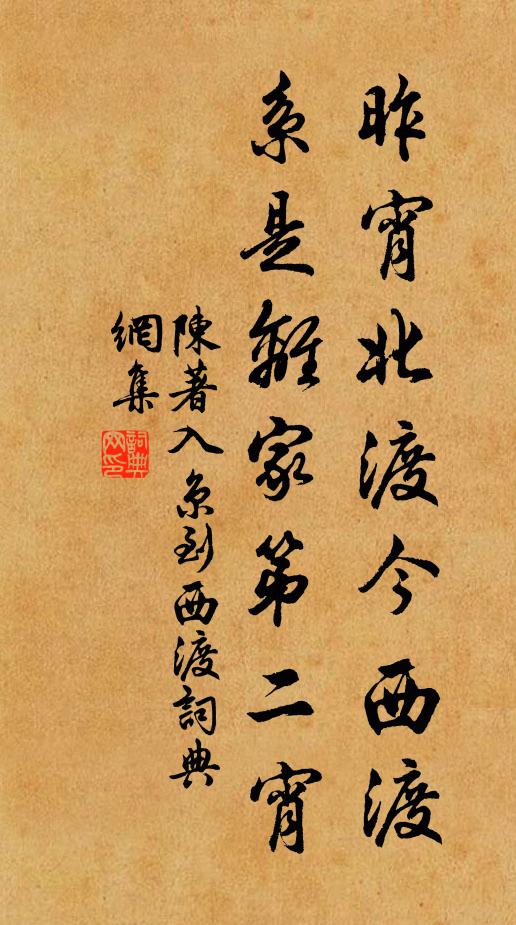 昨宵北渡今西渡
系是離家第二宵
陳著入京到西渡詞典
網集
詞典
网印